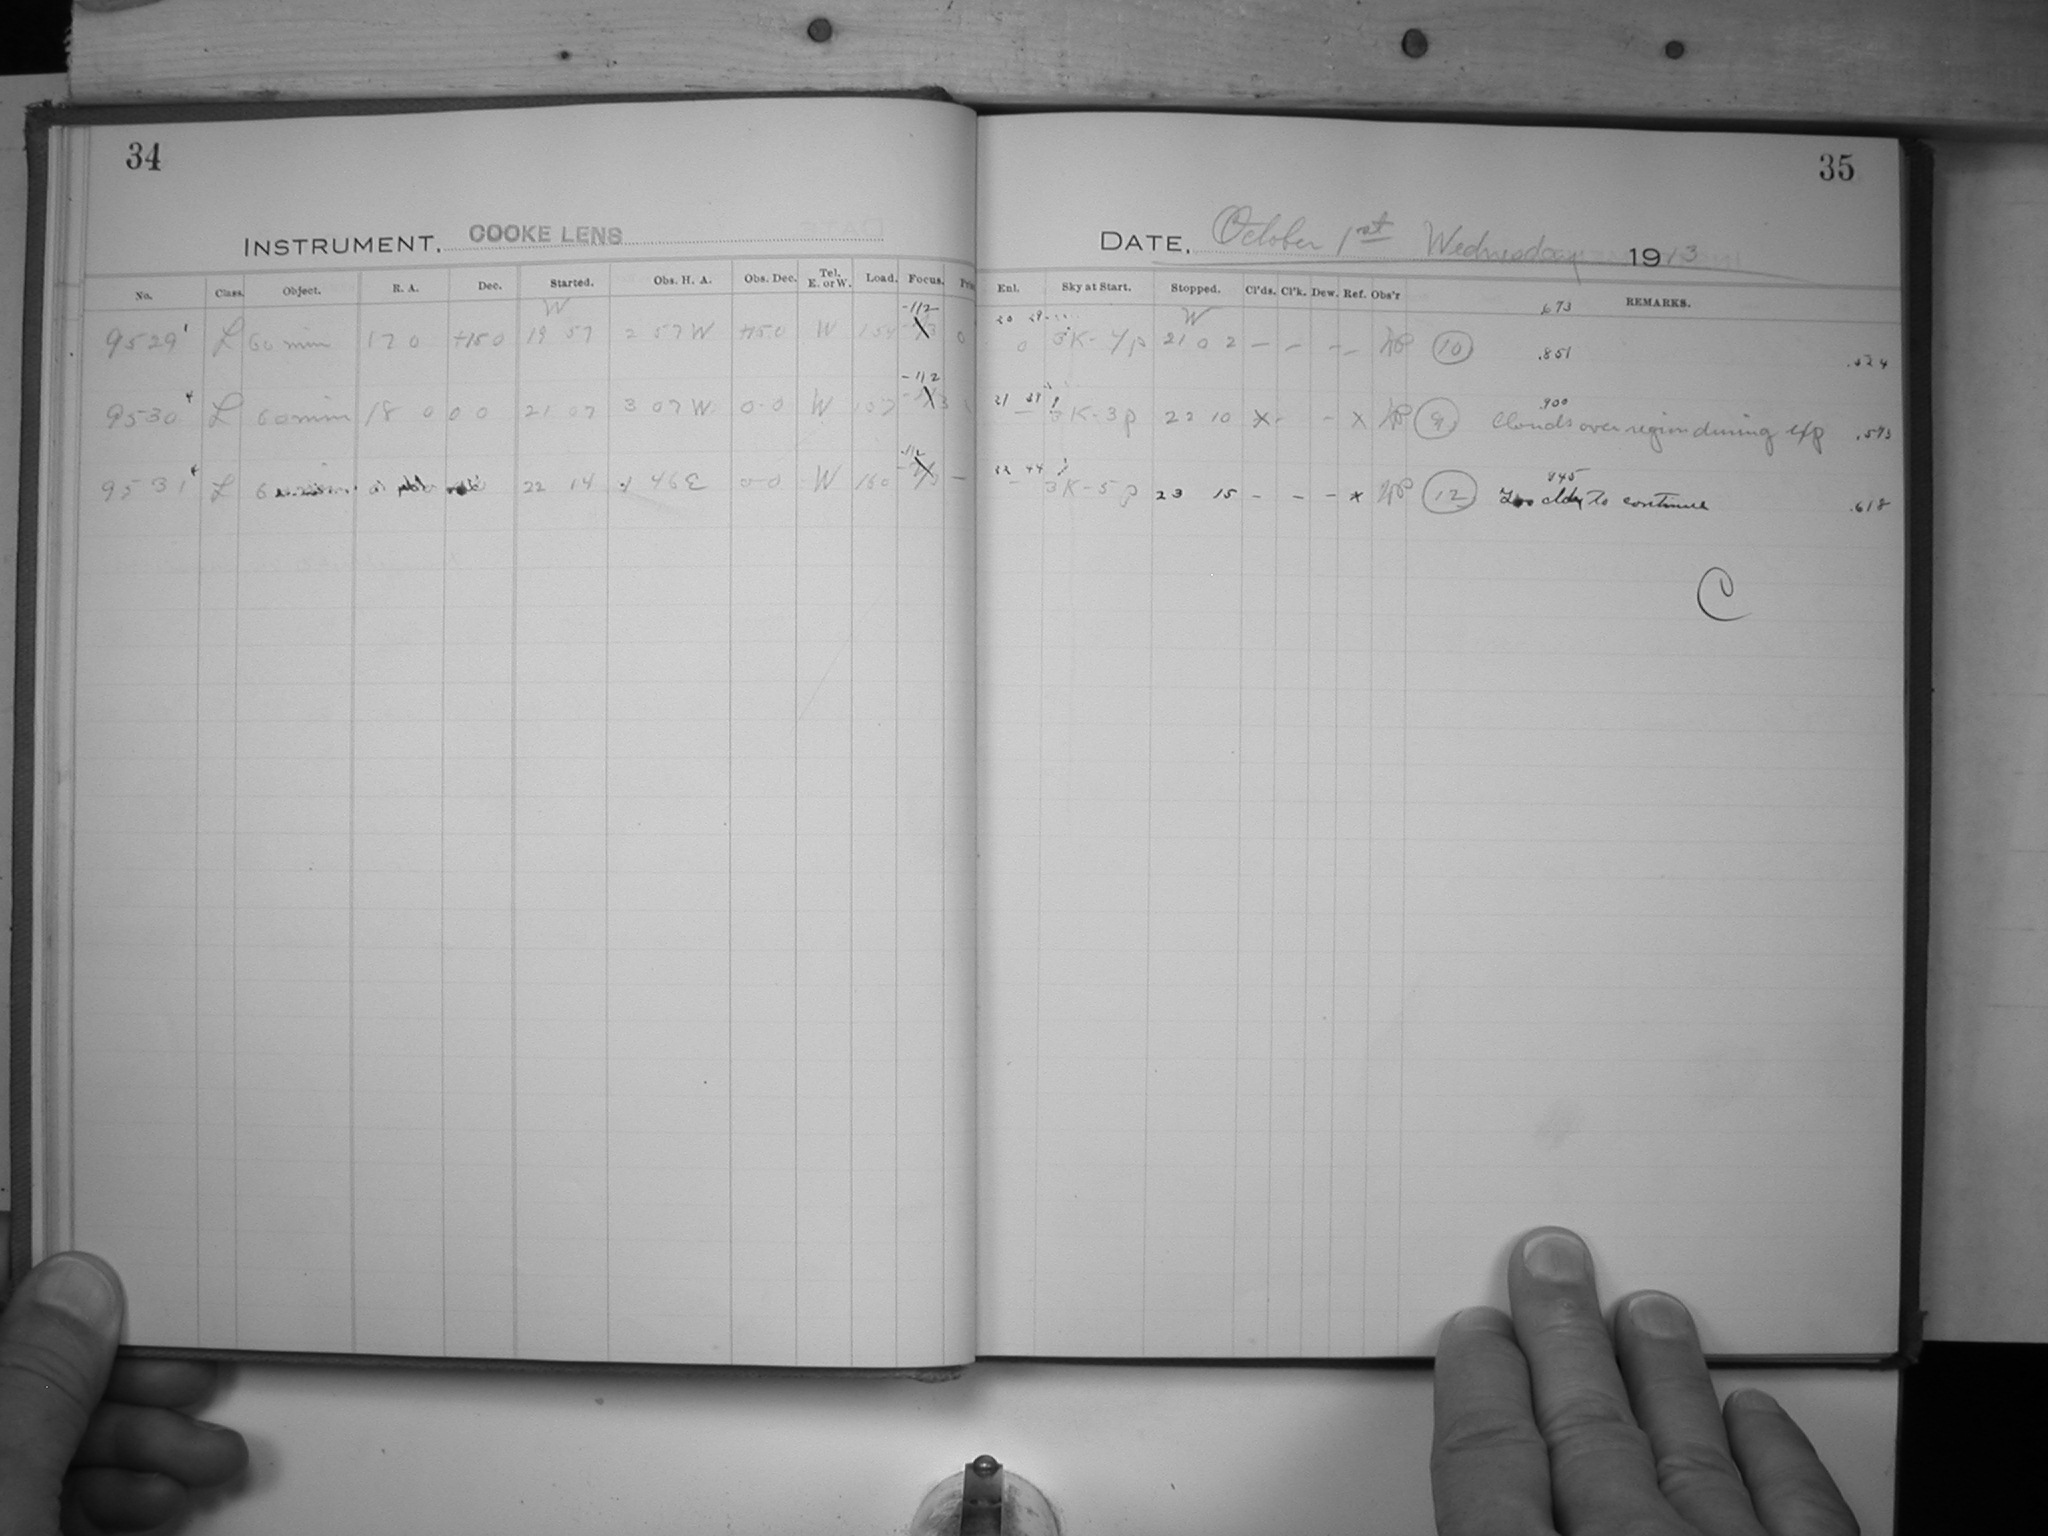 34
INSTRUMENT. COOKE LENS
No. Class. Object. R. A. Dec. Started. Obs. H. A. Obs. Dec. Tel. E. or W. Load. Focus.
W -1/2
9529 1 L 60 min 17 0 +15 0 19 57 2 57 W +15 0 W 154 0
-1/2
9530 4 L 60 min 18 0 0 0 21 07 3 07 W 0-0 W 157
-1/2
9531 4 L 6 22 14 1 46 E 0-0 W 160 —
35
DATE, October 1st Wednesday 1913
Enl. Sky at Start. Stopped. Cl'ds. Cl'k. Dew. Ref. Obs'r REMARKS.
W .673
20 29
0 3K-4p 21 02 — — — — 10 .851 .524
21 .900
— 3K-3p 22 10 X - - X 9 Clouds over region during exp .573
22 44 .945
- 3K-5p 23 15 - - - x 12 Too cldy to continue .618
C